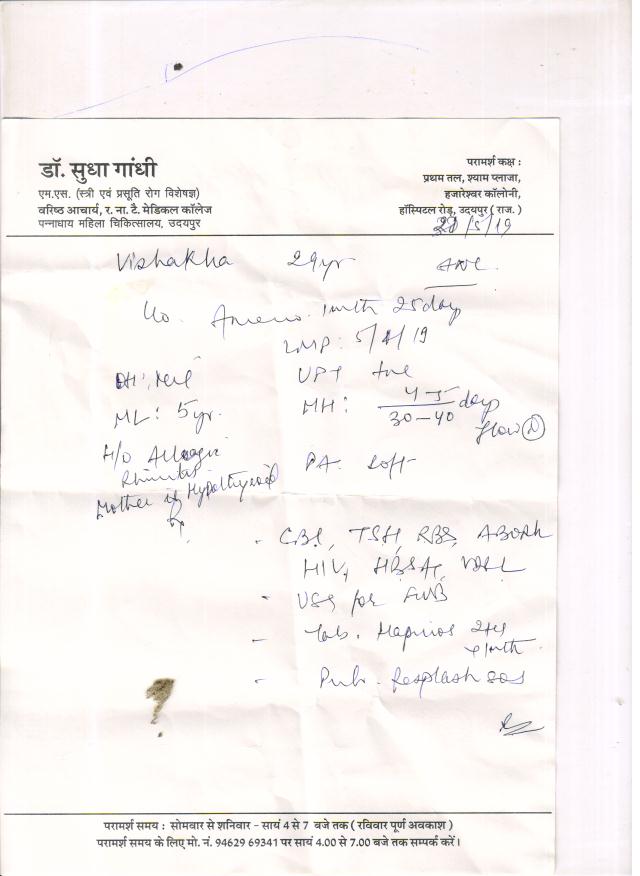 डॉ. सुधा गांधी
एम.एस. (स्त्री एवं प्रसूति रोग विशेषज्ञ)
वरिष्ठ आचार्य, र. ना. टै. मेडिकल कॉलेज
पन्नाधाय महिला चिकित्सालय, उदयपुर
परामर्श कक्ष :
प्रथम तल, श्याम प्लाजा,
हजारेश्वर कॉलोनी,
हॉस्पिटल रोड़, उदयपुर ( राज. )
/5/19
Vishakha 29yr ANC
Ameno. 1mth 25day
LMP: 5/4/19
OH: Nil
UPT +ve
ML: 5yr.
MH: 4-5 days
30-40
flow N
H/o Allergic
Rhinitis
PA: Soft
Mother is Hypothyroid
- CBC, TSH, RBS, ABORh
HIV, HBsAg, VDRL
- USG for FWB
- Tab.
- sos
परामर्श समय : सोमवार से शनिवार - सायं 4 से 7 बजे तक ( रविवार पूर्ण अवकाश )
परामर्श समय के लिए मो. नं. 94629 69341 पर सायं 4.00 से 7.00 बजे तक सम्पर्क करें।